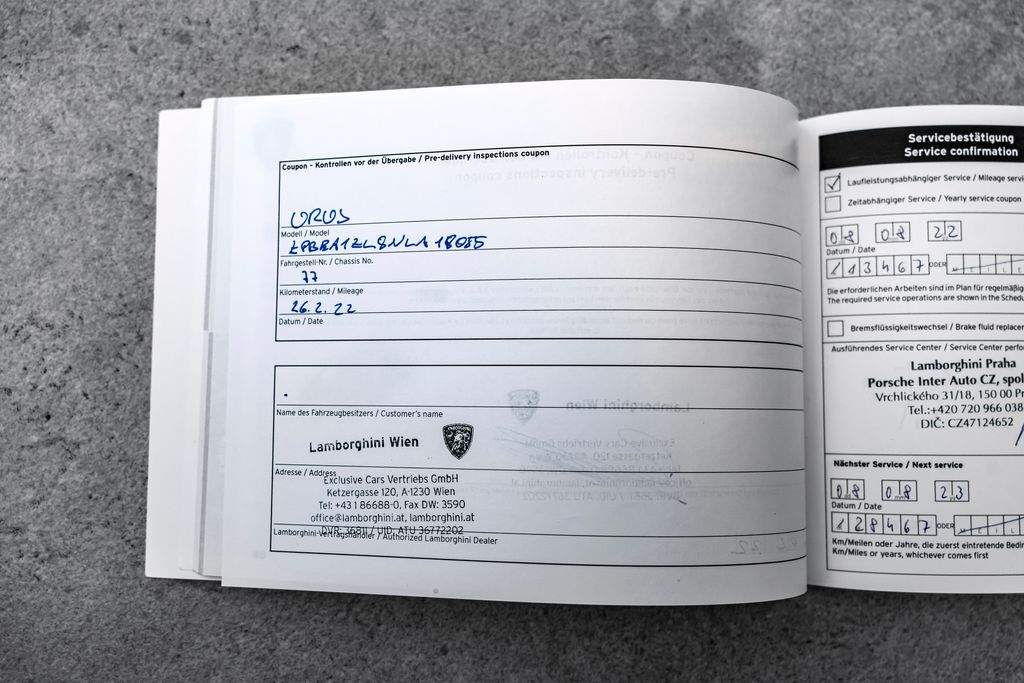 Coupon - Kontrollen vor der Übergabe / Pre-delivery inspections coupon
URUS
Modell / Model
Fahrgestell-Nr. / Chassis No.
77
Kilometerstand / Mileage
26.2.22
Datum / Date
Name des Fahrzeugbesitzers / Customer's name
Lamborghini Wien
Adresse / Address
Exclusive Cars Vertriebs GmbH
Ketzergasse 120, A-1230 Wien
Tel: +43 1 86688-0, Fax DW: 3590
office@lamborghini.at, lamborghini.at
DVR: 36811 / UID: ATU 36772202
Lamborghini-Vertragshändler / Authorized Lamborghini Dealer
Servicebestätigung
Service confirmation
Laufleistungsabhängiger Service / Mileage servi
Zeitabhängiger Service / Yearly service coupon
08 08 22
Datum / Date
113467 ODER
Die erforderlichen Arbeiten sind im Plan für regelmäßig
The required service operations are shown in the Sched
Bremsflüssigkeitswechsel / Brake fluid replacem
Ausführendes Service Center / Service Center perfo
Lamborghini Praha
Porsche Inter Auto CZ, spol
Vrchlického 31/18, 150 00 Pr
Tel.:+420 720 966 038
DIČ: CZ47124652
Nächster Service / Next service
08 08 23
Datum / Date
128467 ODER
Km/Meilen oder Jahre, die zuerst eintretende Bedin
Km/Miles or years, whichever comes first